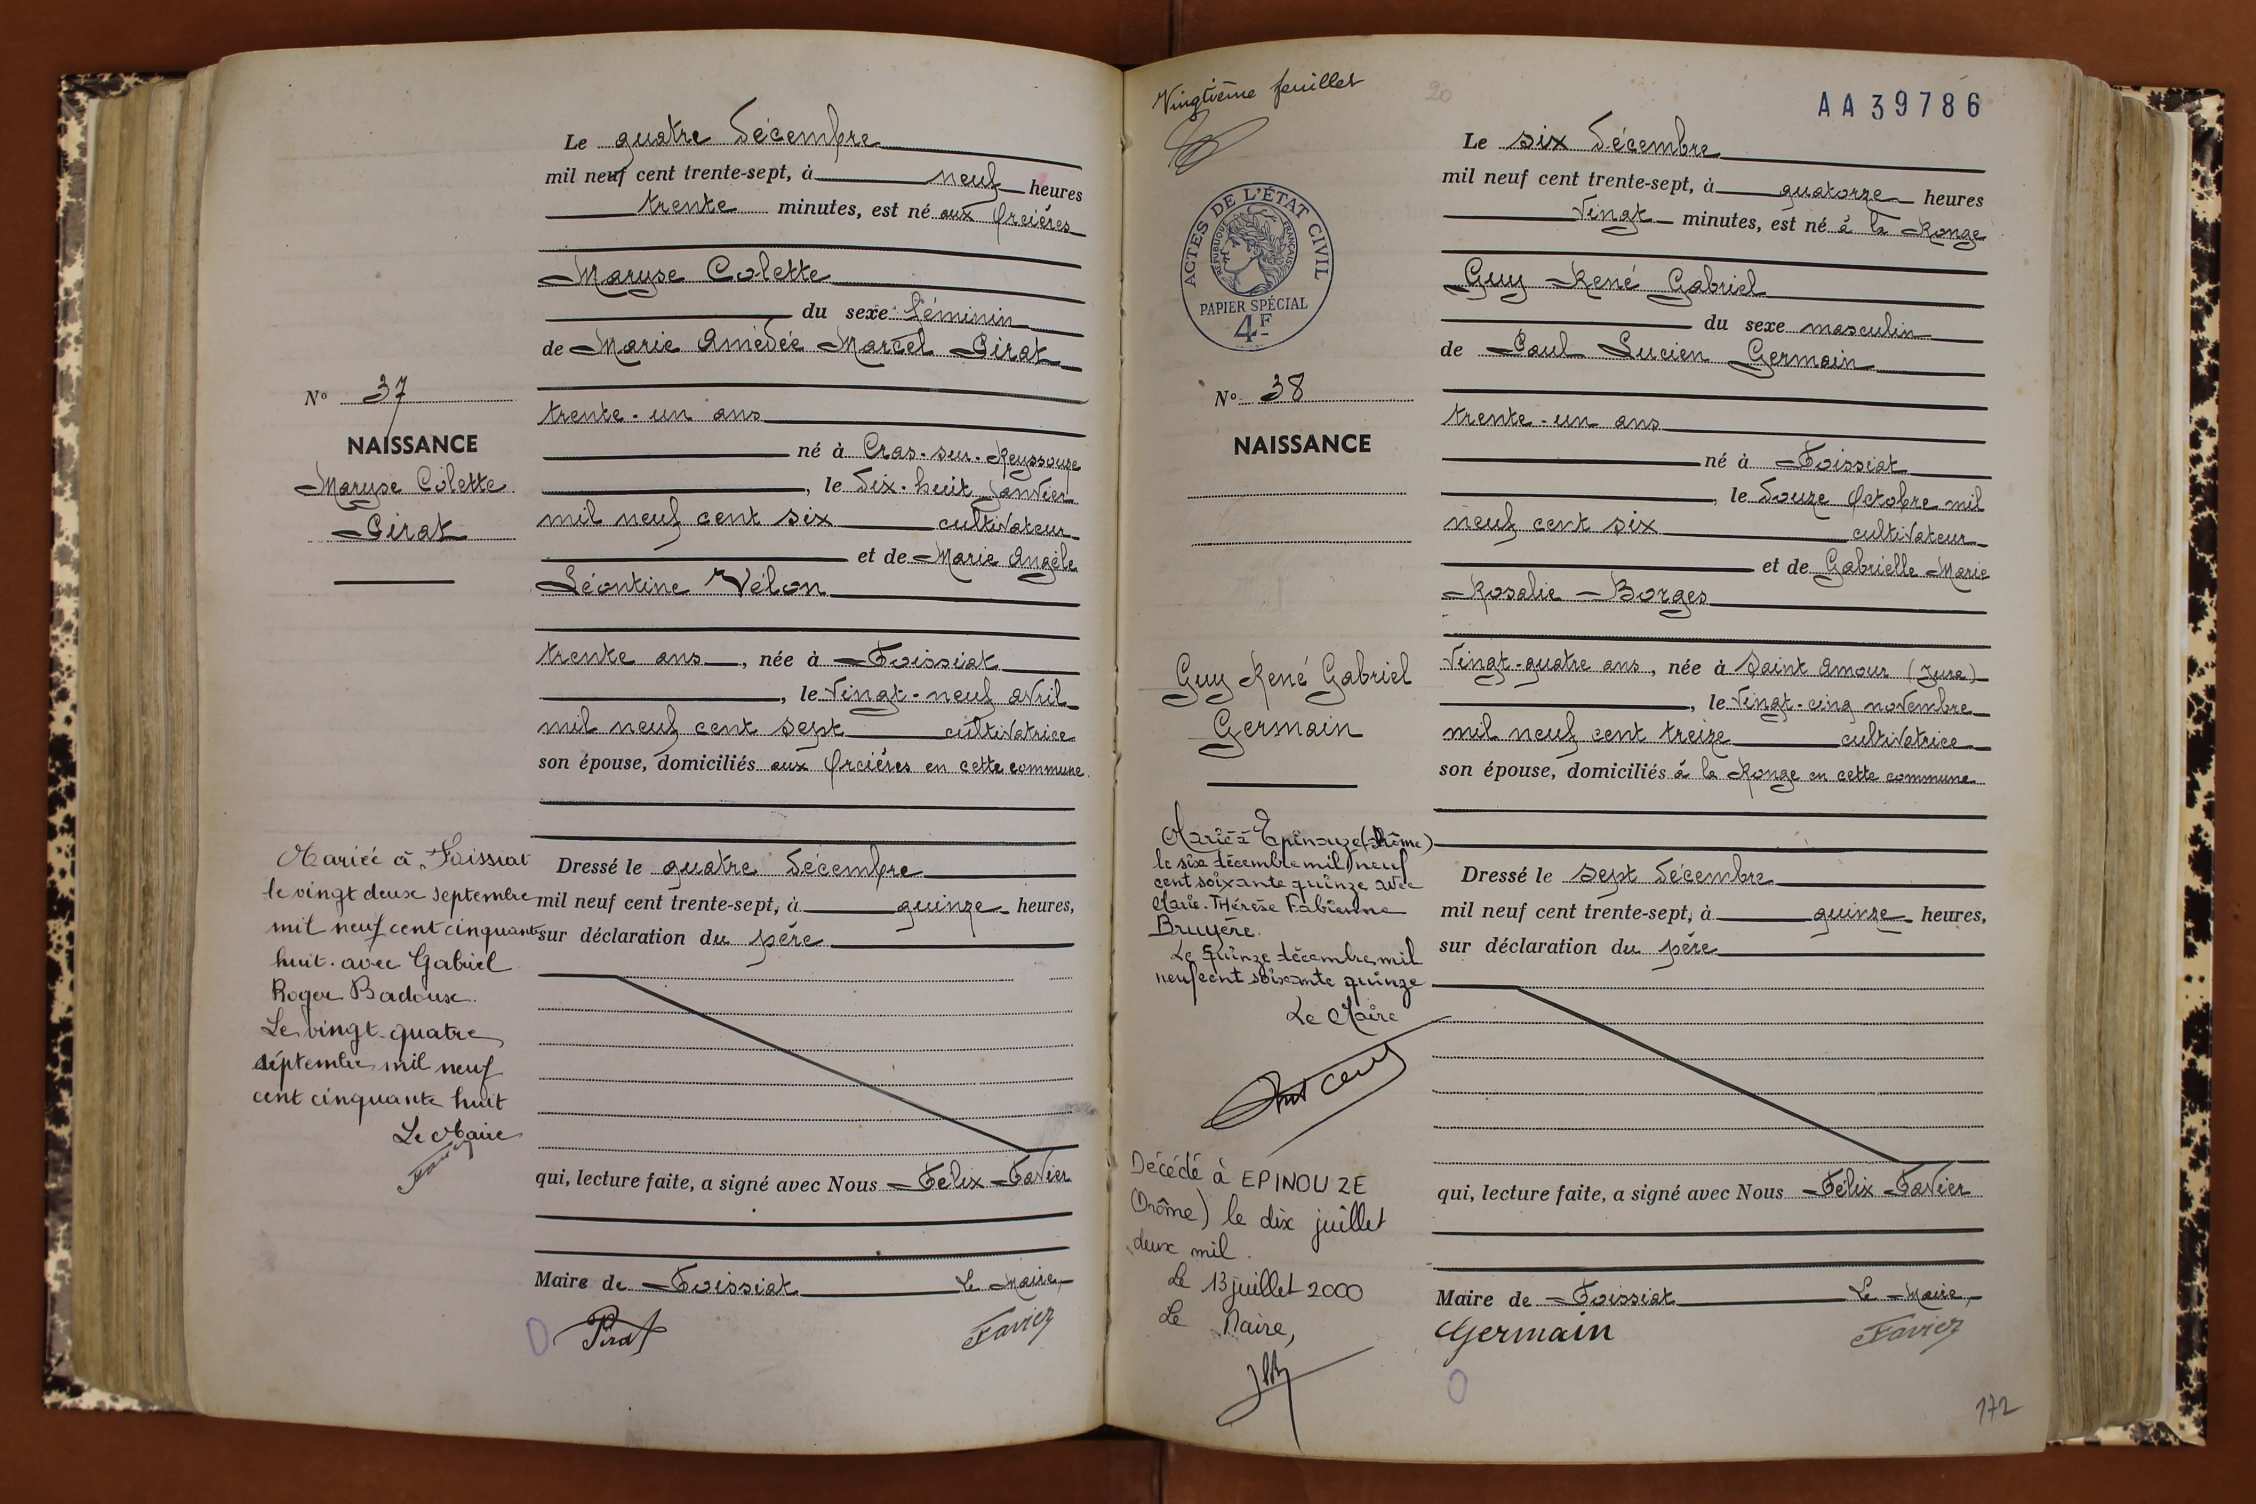 Le quatre Décembre
mil neuf cent trente-sept, à neuf heures
trente minutes, est né aux Orcières
Maryse Colette
du sexe féminin
de Marie Amédée Marcel Pirat
N° 37
NAISSANCE
Maryse Colette
Pirat
trente-un ans
né à Cras-sur-Reyssouze
, le dix-huit Janvier
mil neuf cent six cultivateur
et de Marie Angèle
Léontine Vélon
trente ans, née à Foissiat
, le vingt-neuf avril
mil neuf cent sept cultivatrice
son épouse, domiciliés aux Orcières en cette commune.
Mariée à Foissiat
le vingt deux septembre
mil neuf cent cinquante
huit avec Gabriel
Roger Badoux.
Le vingt-quatre
septembre mil neuf
cent cinquante huit
Le Maire
Favier
Dressé le quatre Décembre
mil neuf cent trente-sept, à quinze heures,
sur déclaration du père
qui, lecture faite, a signé avec Nous Félix Favier
Maire de Foissiat Le Maire,
Pirat Favier
Vingtième feuillet
20
AA39786
ACTES DE L'ÉTAT CIVIL
RÉPUBLIQUE FRANÇAISE
PAPIER SPÉCIAL
4F
Le six Décembre
mil neuf cent trente-sept, à quatorze heures
vingt minutes, est né à la Ronge
Guy René Gabriel
du sexe masculin
de Paul Lucien Germain
N° 38
NAISSANCE
Guy René Gabriel
Germain
trente-un ans
né à Foissiat
, le douze Octobre mil
neuf cent six cultivateur
et de Gabrielle Marie
Rosalie Borges
vingt-quatre ans, née à Saint Amour (Jura)
, le vingt-cinq novembre
mil neuf cent treize cultivatrice
son épouse, domiciliés à la Ronge en cette commune
Marié à Epinouze (Drôme)
le six décembre mil neuf
cent soixante quinze avec
Marie-Thérèse Fabienne
Bruyère.
Le quinze décembre mil
neuf cent soixante quinze
Le Maire
Décédé à EPINOUZE
(Drôme) le dix juillet
deux mil.
Le 13 juillet 2000
Le Maire,
Dressé le sept Décembre
mil neuf cent trente-sept, à quinze heures,
sur déclaration du père
qui, lecture faite, a signé avec Nous Félix Favier
Maire de Foissiat Le Maire,
Germain Favier
172